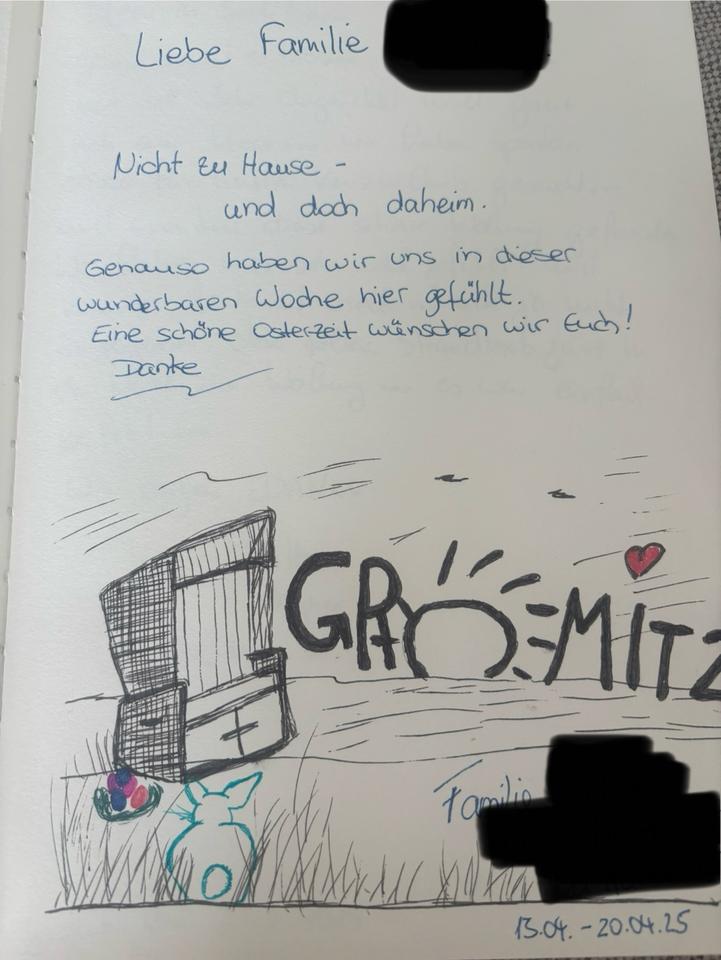 Liebe Familie
Nicht zu Hause -
und doch daheim.
Genauso haben wir uns in dieser
wunderbaren Woche hier gefühlt.
Eine schöne Osterzeit wünschen wir Euch!
Danke
GROEMITZ
Familie
13.04. - 20.04.25